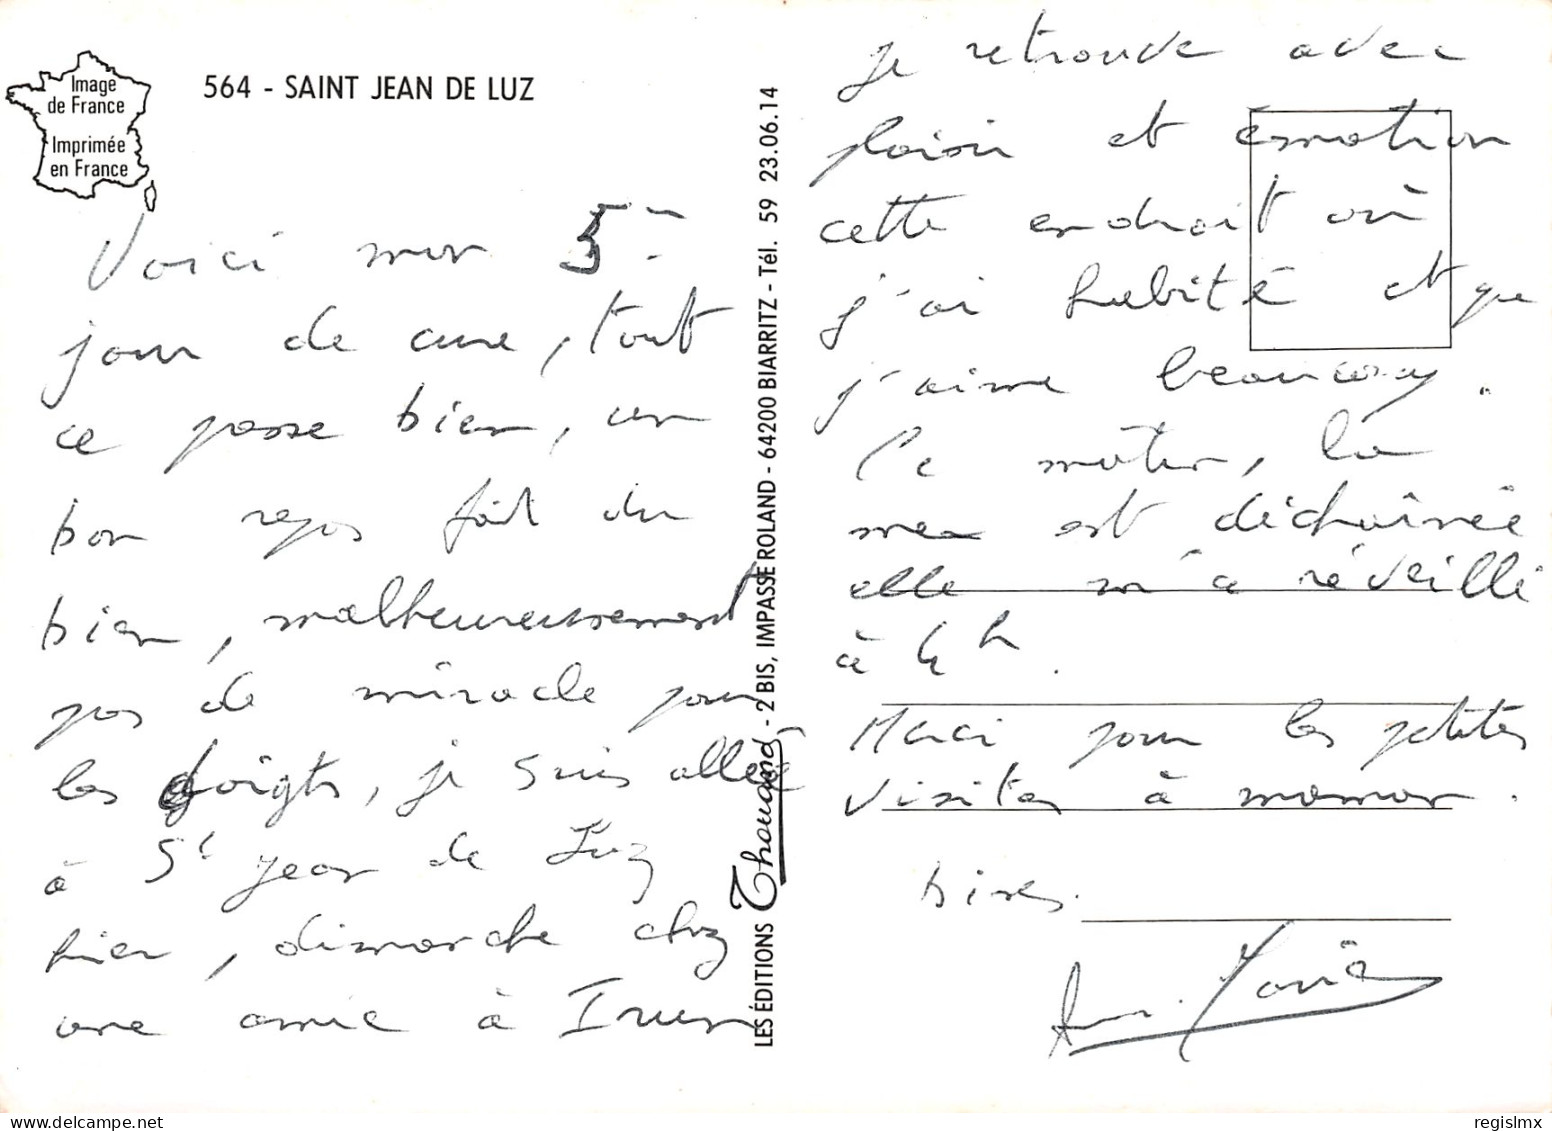 Image
de France
Imprimée
en France
564 - SAINT JEAN DE LUZ
Voici mon 5e
jour de cure, tout
ce passe bien, un
bon repos fait du
bien, malheureusement
pas de miracle pour
les doigts, je suis allée
à St Jean de Luz
hier, dimanche chez
une amie à Irun
LES ÉDITIONS Thouand - 2 BIS, IMPASSE ROLAND - 64200 BIARRITZ - Tél. 59 23.06.14
je retrouve avec
plaisir et émotion
cette endroit où
j'ai habité et que
j'aime beaucoup.
Ce matin, la
mer est déchaînée
elle m'a réveillé
à 4h.
Merci pour les petites
visites à maman.
bises.
Anne Marie
regislmx